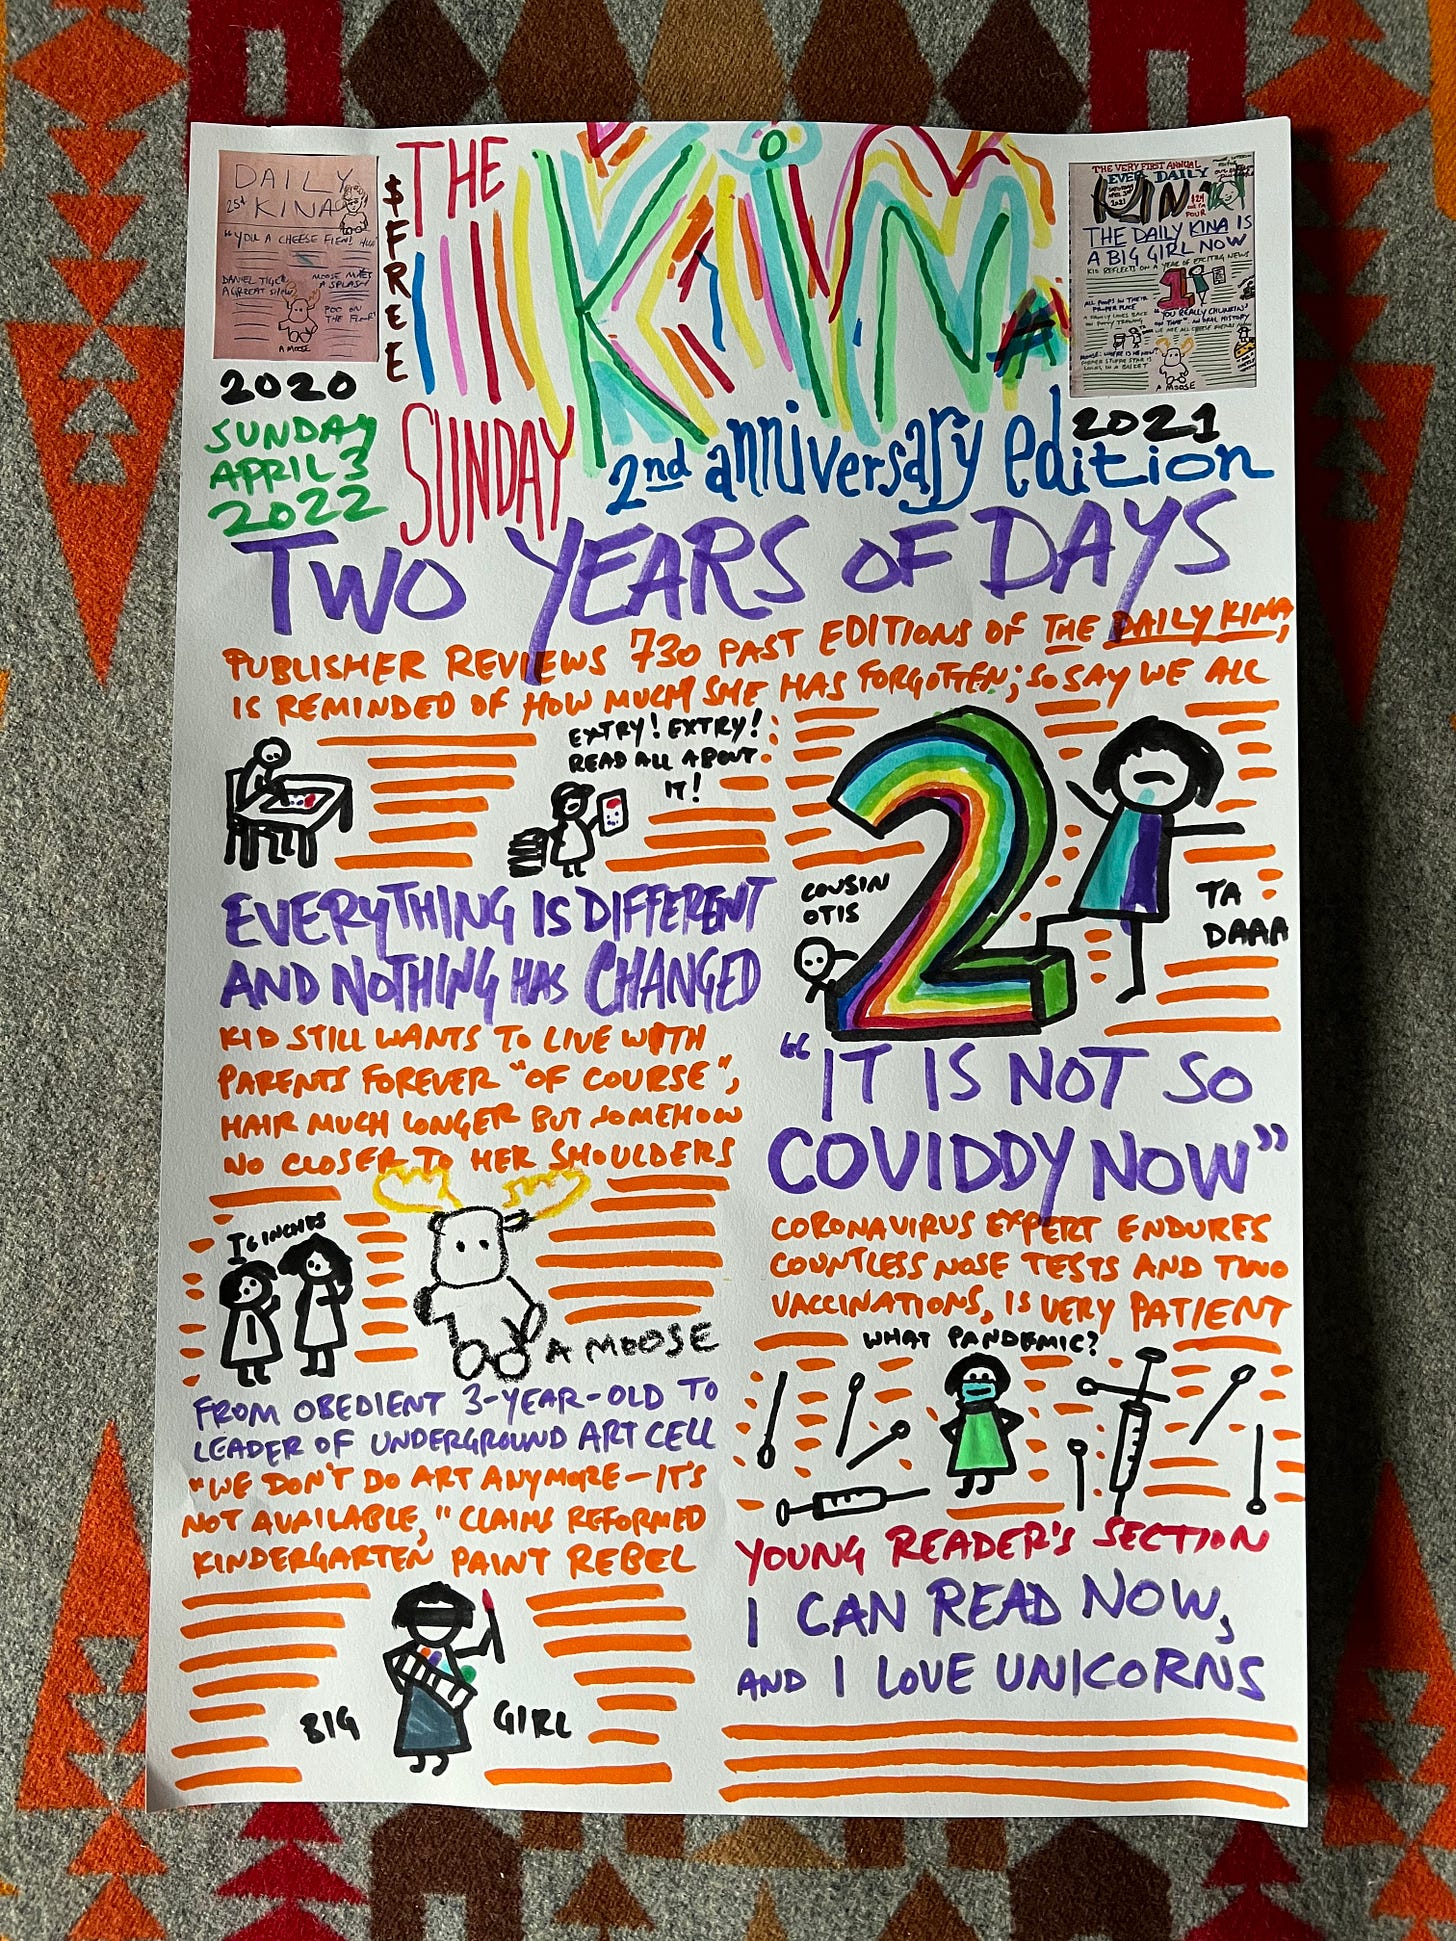 DAILY
KINA
"YOU A CHEESE FIEN!
DANIEL TIGER
A GREAT SHOW
MOOSE MAKES
A SPLASH
POO ON
THE FLOOR
A MOOSE
2020
$FREE
THE
KINA
SUNDAY
2nd anniversary edition
THE VERY FIRST ANNUAL
EVER DAILY
KINA
SATURDAY
2021
THE DAILY KINA IS
A BIG GIRL NOW
KID REFLECTS ON A YEAR OF EXCITING NEWS
1
ALL POOPS IN THEIR
PROPER PLACE
A FAMILY LOOKS BACK
ON POTTY TRAINING
"YOU REALLY CHUNKIN'
ON THAT" AN ORAL HISTORY
WE ARE ALL CHEESE FIENDS
MOOSE: WHERE IS HE NOW?
FORMER STUFFIE STAR IS
LIVING IN A BASKET
A MOOSE
2021
SUNDAY
APRIL 3
2022
TWO YEARS OF DAYS
PUBLISHER REVIEWS 730 PAST EDITIONS OF THE DAILY KINA,
IS REMINDED OF HOW MUCH SHE HAS FORGOTTEN; SO SAY WE ALL
EXTRY! EXTRY!
READ ALL ABOUT
IT!
EVERYTHING IS DIFFERENT
AND NOTHING HAS CHANGED
KID STILL WANTS TO LIVE WITH
PARENTS FOREVER "OF COURSE",
HAIR MUCH LONGER BUT SOMEHOW
NO CLOSER TO HER SHOULDERS
6 INCHES
A MOOSE
FROM OBEDIENT 3-YEAR-OLD TO
LEADER OF UNDERGROUND ART CELL
"WE DON'T DO ART ANYMORE – IT'S
NOT AVAILABLE," CLAIMS REFORMED
KINDERGARTEN PAINT REBEL
BIG
GIRL
2
COUSIN
OTIS
TA
DAAA
"IT IS NOT SO
COVIDDY NOW"
CORONAVIRUS EXPERT ENDURES
COUNTLESS NOSE TESTS AND TWO
VACCINATIONS, IS VERY PATIENT
WHAT PANDEMIC?
YOUNG READER'S SECTION
I CAN READ NOW,
AND I LOVE UNICORNS